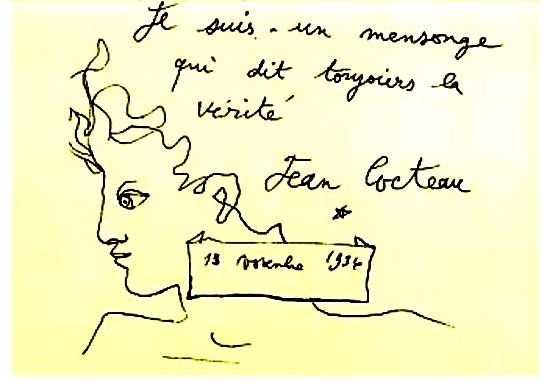 Je suis - un mensonge
qui dit toujoiers la
vérité
Jean Cocteau
13 novenhe 1934